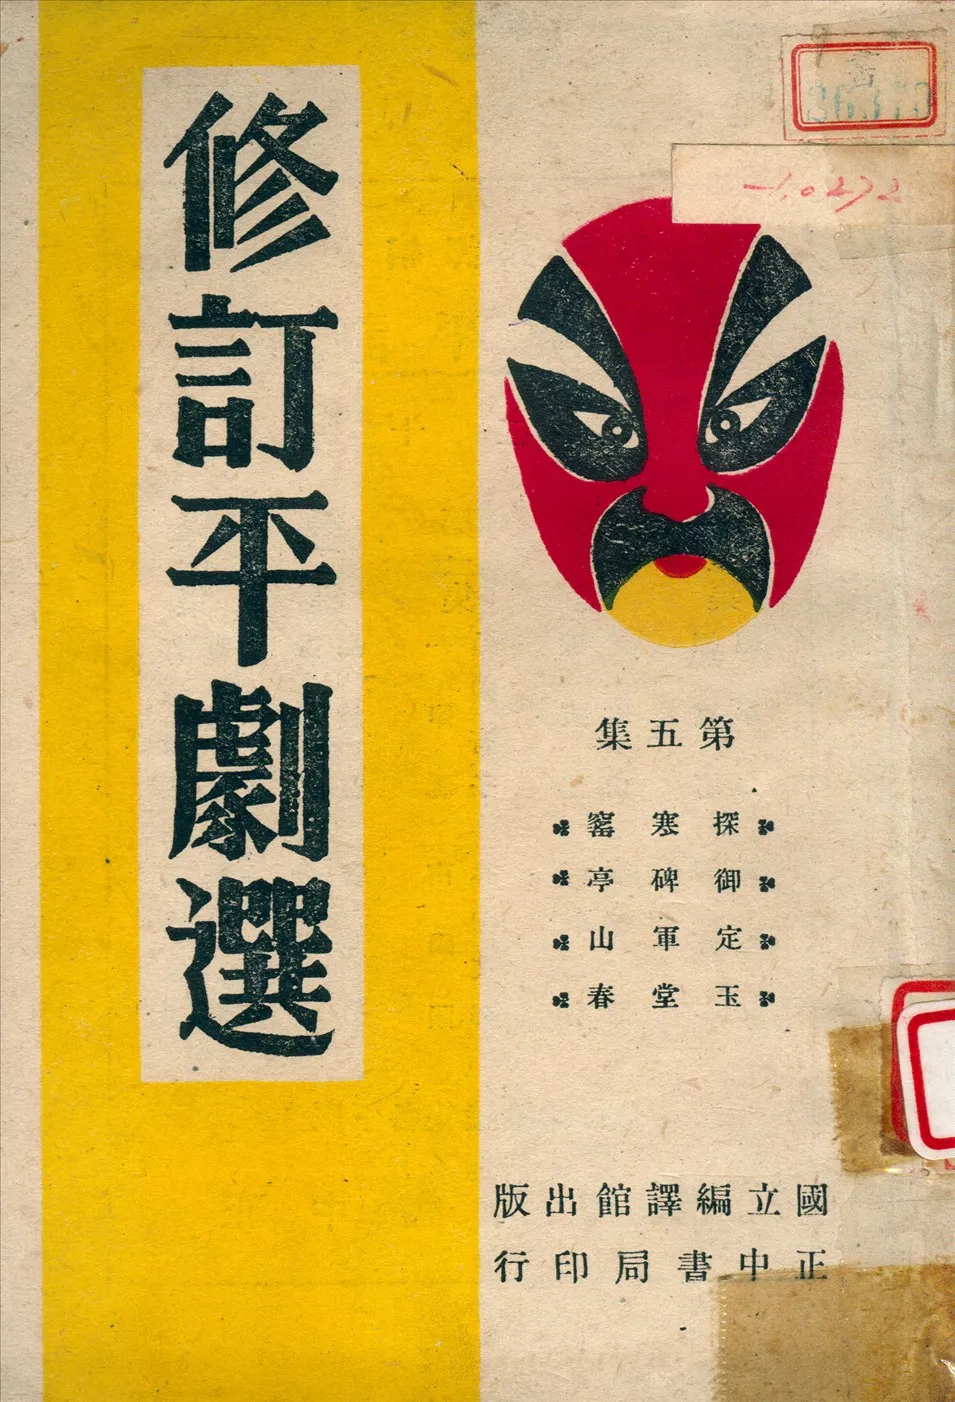 修訂平劇選
第五集
探寒窰
御碑亭
定軍山
玉堂春
國立編譯館出版
正中書局印行